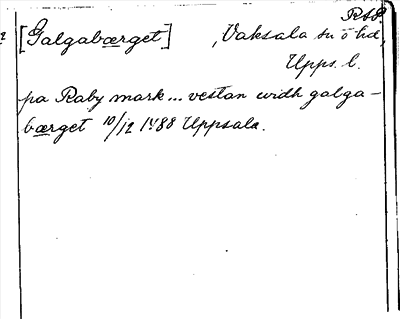 RAP
[Galgabærget] , Vaksala sn ö hd,
Upps. l.
pa Raby mark ... vestan widh galga-
bærget 10/12 1488 Uppsala.